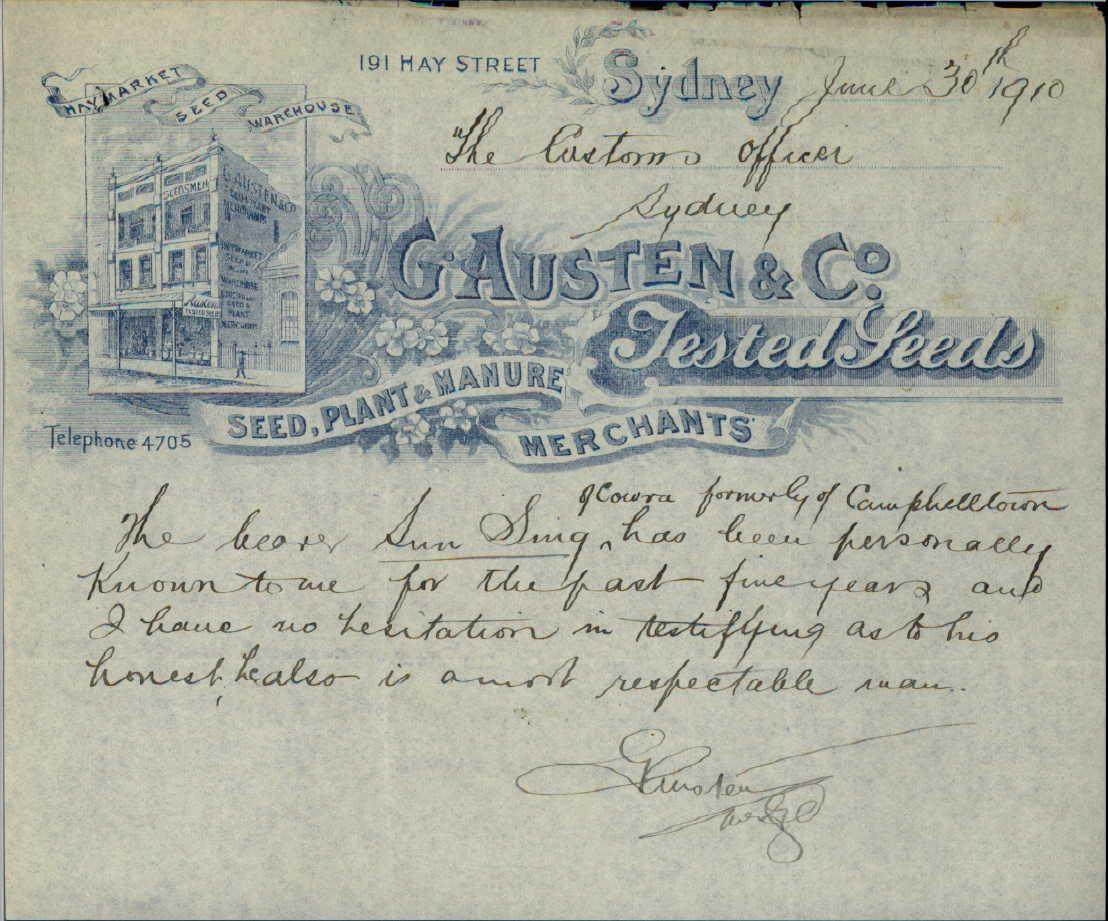 191 HAY STREET Sydney June 30th 1910
HAYMARKET SEED WAREHOUSE
The Customs Officer
Sydney
SEEDSMEN
G. AUSTEN & CO
MERCHANTS
HAYMARKET
SEED &
PLANT
MERCHANTS
G. AUSTEN & Co.
Tested Seeds
SEED, PLANT & MANURE
MERCHANTS
Telephone 4705
of Cowra formerly of Camphelltown
The bearer Sun Sing, has been personally
known to me for the past five years and
I have no hesitation in testifying as to his
honest, he also is a most respectable man.
G Austen